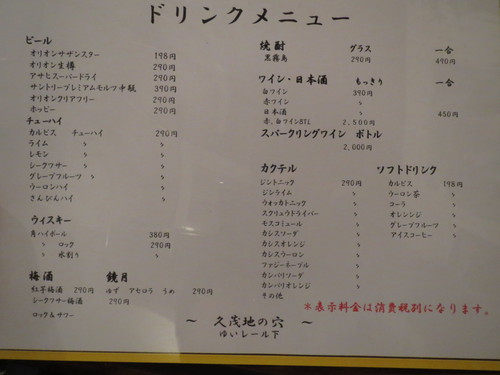 ドリンクメニュー
ビール
オリオンサザンスター 198円
オリオン生樽 290円
アサヒスーパードライ 290円
サントリープレミアムモルツ中瓶 390円
オリオンクリアフリー 290円
ホッピー 290円
チューハイ
カルピス チューハイ 290円
ライム 〃
レモン 〃
シークワサー 〃
グレープフルーツ 〃
ウーロンハイ 〃
さんぴんハイ 〃
ウィスキー
角ハイボール 380円
〃 ロック 290円
〃 水割り 〃
梅酒
紅芋梅酒 290円
シークワサー梅酒 290円
ロック&サワー
鏡月
ゆず アセロラ うめ 290円
焼酎 グラス 一合
黒霧島 290円 490円
ワイン・日本酒 もっきり 一合
白ワイン 390円
赤ワイン 〃
日本酒 〃 450円
赤、白ワインBTL 2,500円
スパークリングワイン ボトル
2,000円
カクテル
ジントニック 290円
ジンライム 〃
ウォッカトニック 〃
スクリュウドライバー 〃
モスコミュール 〃
カシスソーダ 〃
カシスオレンジ 〃
カシスウーロン 〃
ファジーネーブル 〃
カンパリソーダ 〃
カンパリオレンジ 〃
その他 〃
ソフトドリンク
カルピス 198円
ウーロン茶 〃
コーラ 〃
オレンンジ 〃
グレープフルーツ 〃
アイスコーヒー 〃
*表示料金は消費税別になります。
～ 久茂地の穴 ～
ゆいレール下